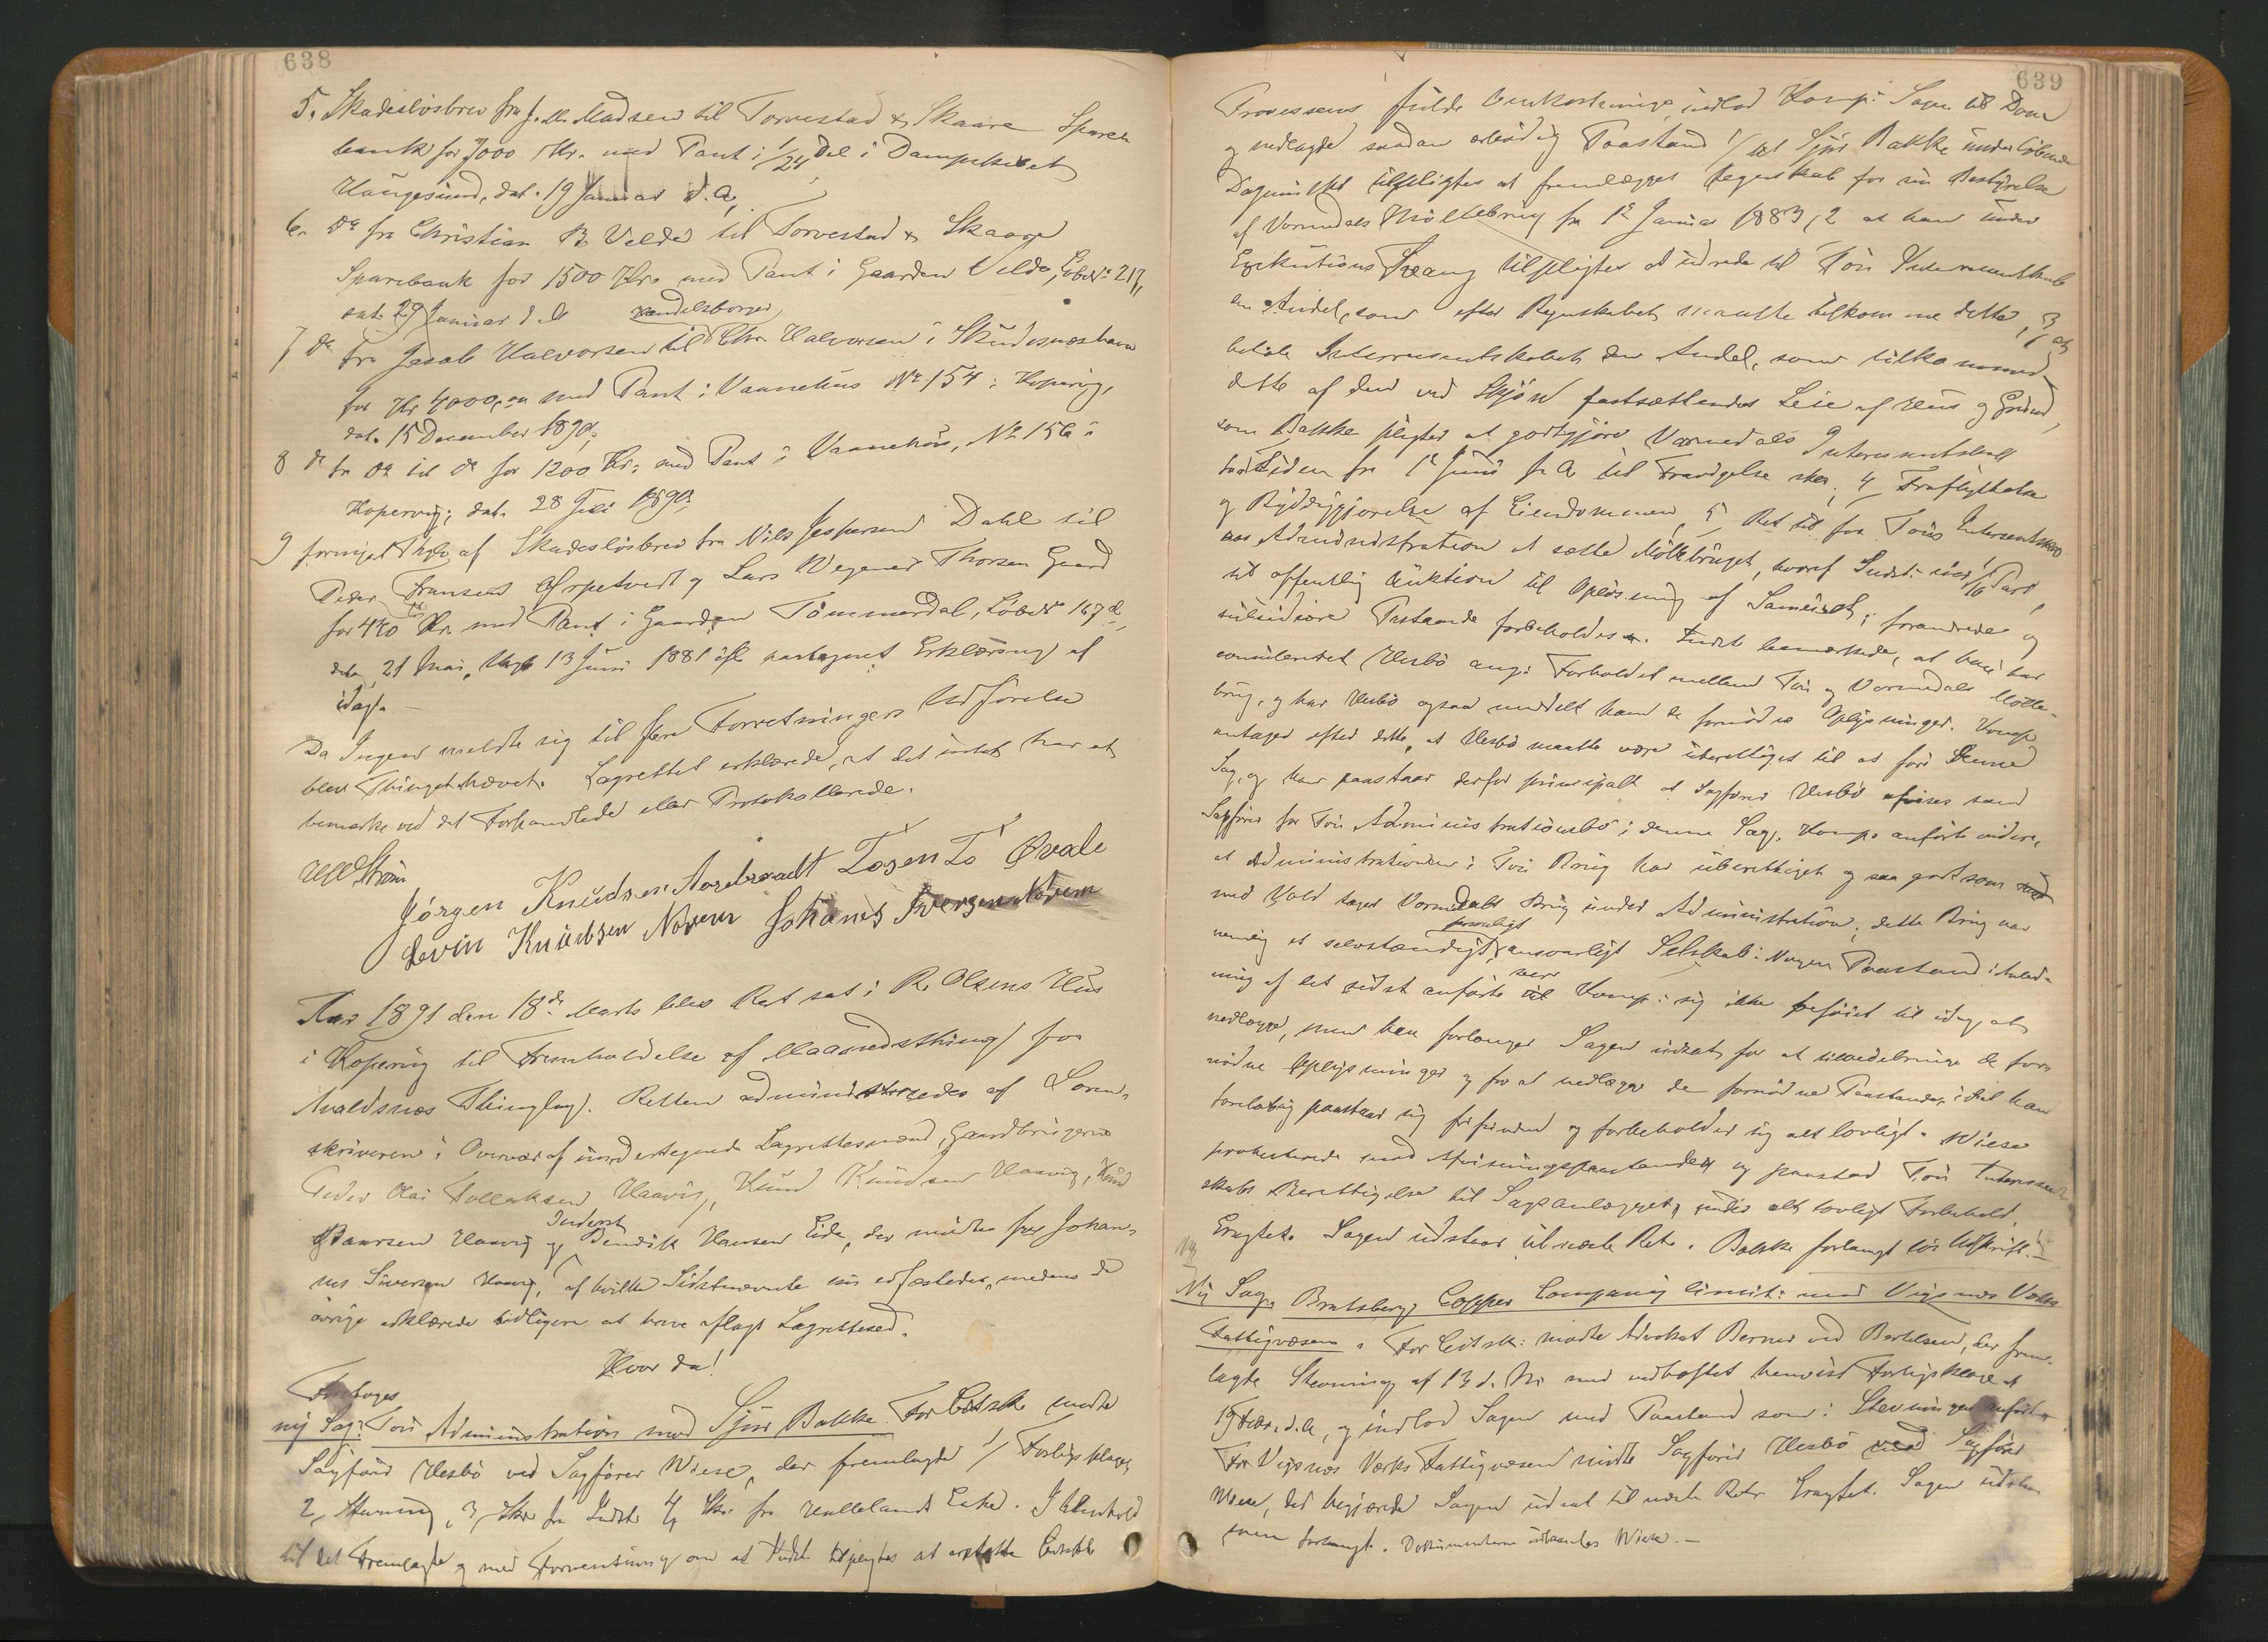 638
5. Skadesløsbrev fra J. M. Madsen til Torvestad & Skaare Spare-
bank for 7000 Kr. med Pant i 1/24 Del i Dampskibet
Haugesund, dat. 19 Januar d. A.
6. do fra Christian B. Velde til Torvestad & Skaare
Sparebank for 1500 Kr. med Pant i Gaarden Velde, Løbe No 217,
dat. 29 Januar d. A.
7 do fra Jacob Halvorsen til Handelsborger Chr. Halvorsen i Skudesneshavn
for Kr. 4000,00 med Pant i Vaanehus No 154 i Kopervig,
dat. 15 December 1890.
8 do fra do til do for 1200 Kr. med Pant i Vaanehus, No 156 i
Kopervig, dat. 28 Juli 1890.
9 fornyet Thgl. af Skadesløsbrev fra Nils Jespersen Dahl til
Peder Fransen Ørpetvedt og Lars Wegner Thorsen Gaard
for 440 Kr. med Pant i Gaarden Tømmerdal, Løbe No 167 d,
dat. 21 Mai, thgl. 13 Juni 1881 ifl. paategnet Erklæring af
idag. —
Da Ingen meldte sig til flere Forretningers Udførelse
blev Thinget hævet. Lagrettet erklærede, at det intet har at
bemærke ved det Forhandlede eller Protokollerede.
Strøm
Jørgen Knudsen Aarebraadt Tosen To Qvale
Levin Knudsen Norem Johanes Iversen Norem
Aar 1891 den 18de Marts blev Ret sat i R. Olsens Hus
i Kopervig til Fremholdelse af Maanedsthing for
Avaldsnes Thinglag. Retten administreredes af Soren-
skriveren i Overvær af undertegnede Lagrettesmænd, Gaardbrugerne
Peder Olai Tollaksen Haavig, Knud Knudsen Haavig, Knud
Baarsen Haavig og Inderst Bendik Hansen Eide, der mødte for Johan-
nes Siversen Haavig, af hvilke Sidstnævnte nu edfæstedes, medens de
øvrige erklærede tidligere at have aflagt Lagrettesed.
Hvor da!
Foretoges
ny Sag: Tori Administration mod Sjur Bakke. For Citsk. mødte
Sagfører Vesbø ved Sagfører Wiese, der fremlagde 1/ Forligsklage,
2, Stevning, 3, Skr. fra Indst. 4, Skr. fra Hallelands Enke. I Henhold
til det Fremlagte og med Formening om at Indst. tilpligtes at erstatte Citsk.
639
Processens fulde Omkostninger, indlod Komp. Sagen til Dom
og nedlagde saadan ærbødig Paastand 1/ at Sjur Bakke under løbende
Dagmulkt tilpligtes at fremlægge Regnskab for sin Bestyrelse
af Vormedals Møllebrug fra 1te Januar 1883, 2 at han under
Exekutions Tvang tilpligtes at udrede til Tori Interessentskab
en Andel, som efter Regnskabet maatte tilkomme dette, 3, at
betale Interessentskabet den Andel, som tilkommer
dette af den ved Skjøn fastsættendes Leie af Hus og Grund,
som Bakke pligter at godtgjøre Vormedals Interessentskab
for Tiden fra 1te Juni f. A. til Fravigelse sker, 4, Fraflyttelse
og Ryddiggjørelse af Eiendommen, 5, Ret til for Toris Interessentskabs
Administration at sætte Møllebruget, hvoraf Indst. eier 1/16 Part,
til offentlig Auktion til Opløsning af Sameiet; forandrede og
subsidiære Paastande forbeholdes. Indst. bemærkede, at han har
consuleret Vesbø ang. Forholdet mellem Tori og Vormedals Mølle-
brug, og har Vesbø ogsaa meddelt ham de fornødne Oplysninger. Komp.
antager efter dette, at Vesbø maatte være uberettiget til at føre denne
Sag, og han paastaar derfor principalt at Sagfører Vesbø afvises som
Sagfører for Tori Administrationsbo i denne Sag. Komp. anførte videre,
at Administrationen i Tori Brug har uberettiget og saa godt som
med Vold taget Vormedals Brug under Administration; dette Brug var
nemlig et selvstændigt, personligt ansvarligt Selskab. Nogen Paastand i Anled-
ning af det sidst anførte ser Komp. sig ikke beføiet til idag at
nedlægge, men han forlanger Sagen udsat for at tilveiebringe de for-
nødne Oplysninger og for at nedlægge de fornødne Paastande, idet han
foreløbig paastaar sig frifunden og forbeholder sig alt lovligt. Wiese
protesterede mod Afvisningspaastanden og paastod Tori Interessent-
skabs Berettigelse til Saganlægget, under alt lovligt Forbehold.
Eragtet. Sagen udstaar til næste Ret. Bakke forlangt løs Udskrift. —
Ny Sag. Bratsberg Copper Company limit: mod Vigsnes Værks
Fattigvæsen. For Citsk. mødte Advokat Berner ved Bertelsen, der frem-
lagde Stevning af 13 d. M. med vedhæftet henvist Forligsklage af
19 Febr. d. A., og indlod Sagen med Paastand som i Stevningen anført.
For Vigsnes Værks Fattigvæsen mødte Sagfører Vesbø ved Sagfører
Wiese, der begjærede Sagen udsat til næste Ret. Eragtet. Sagen udstaar
som forlangt. Dokumenterne udlaantes Wiese. —